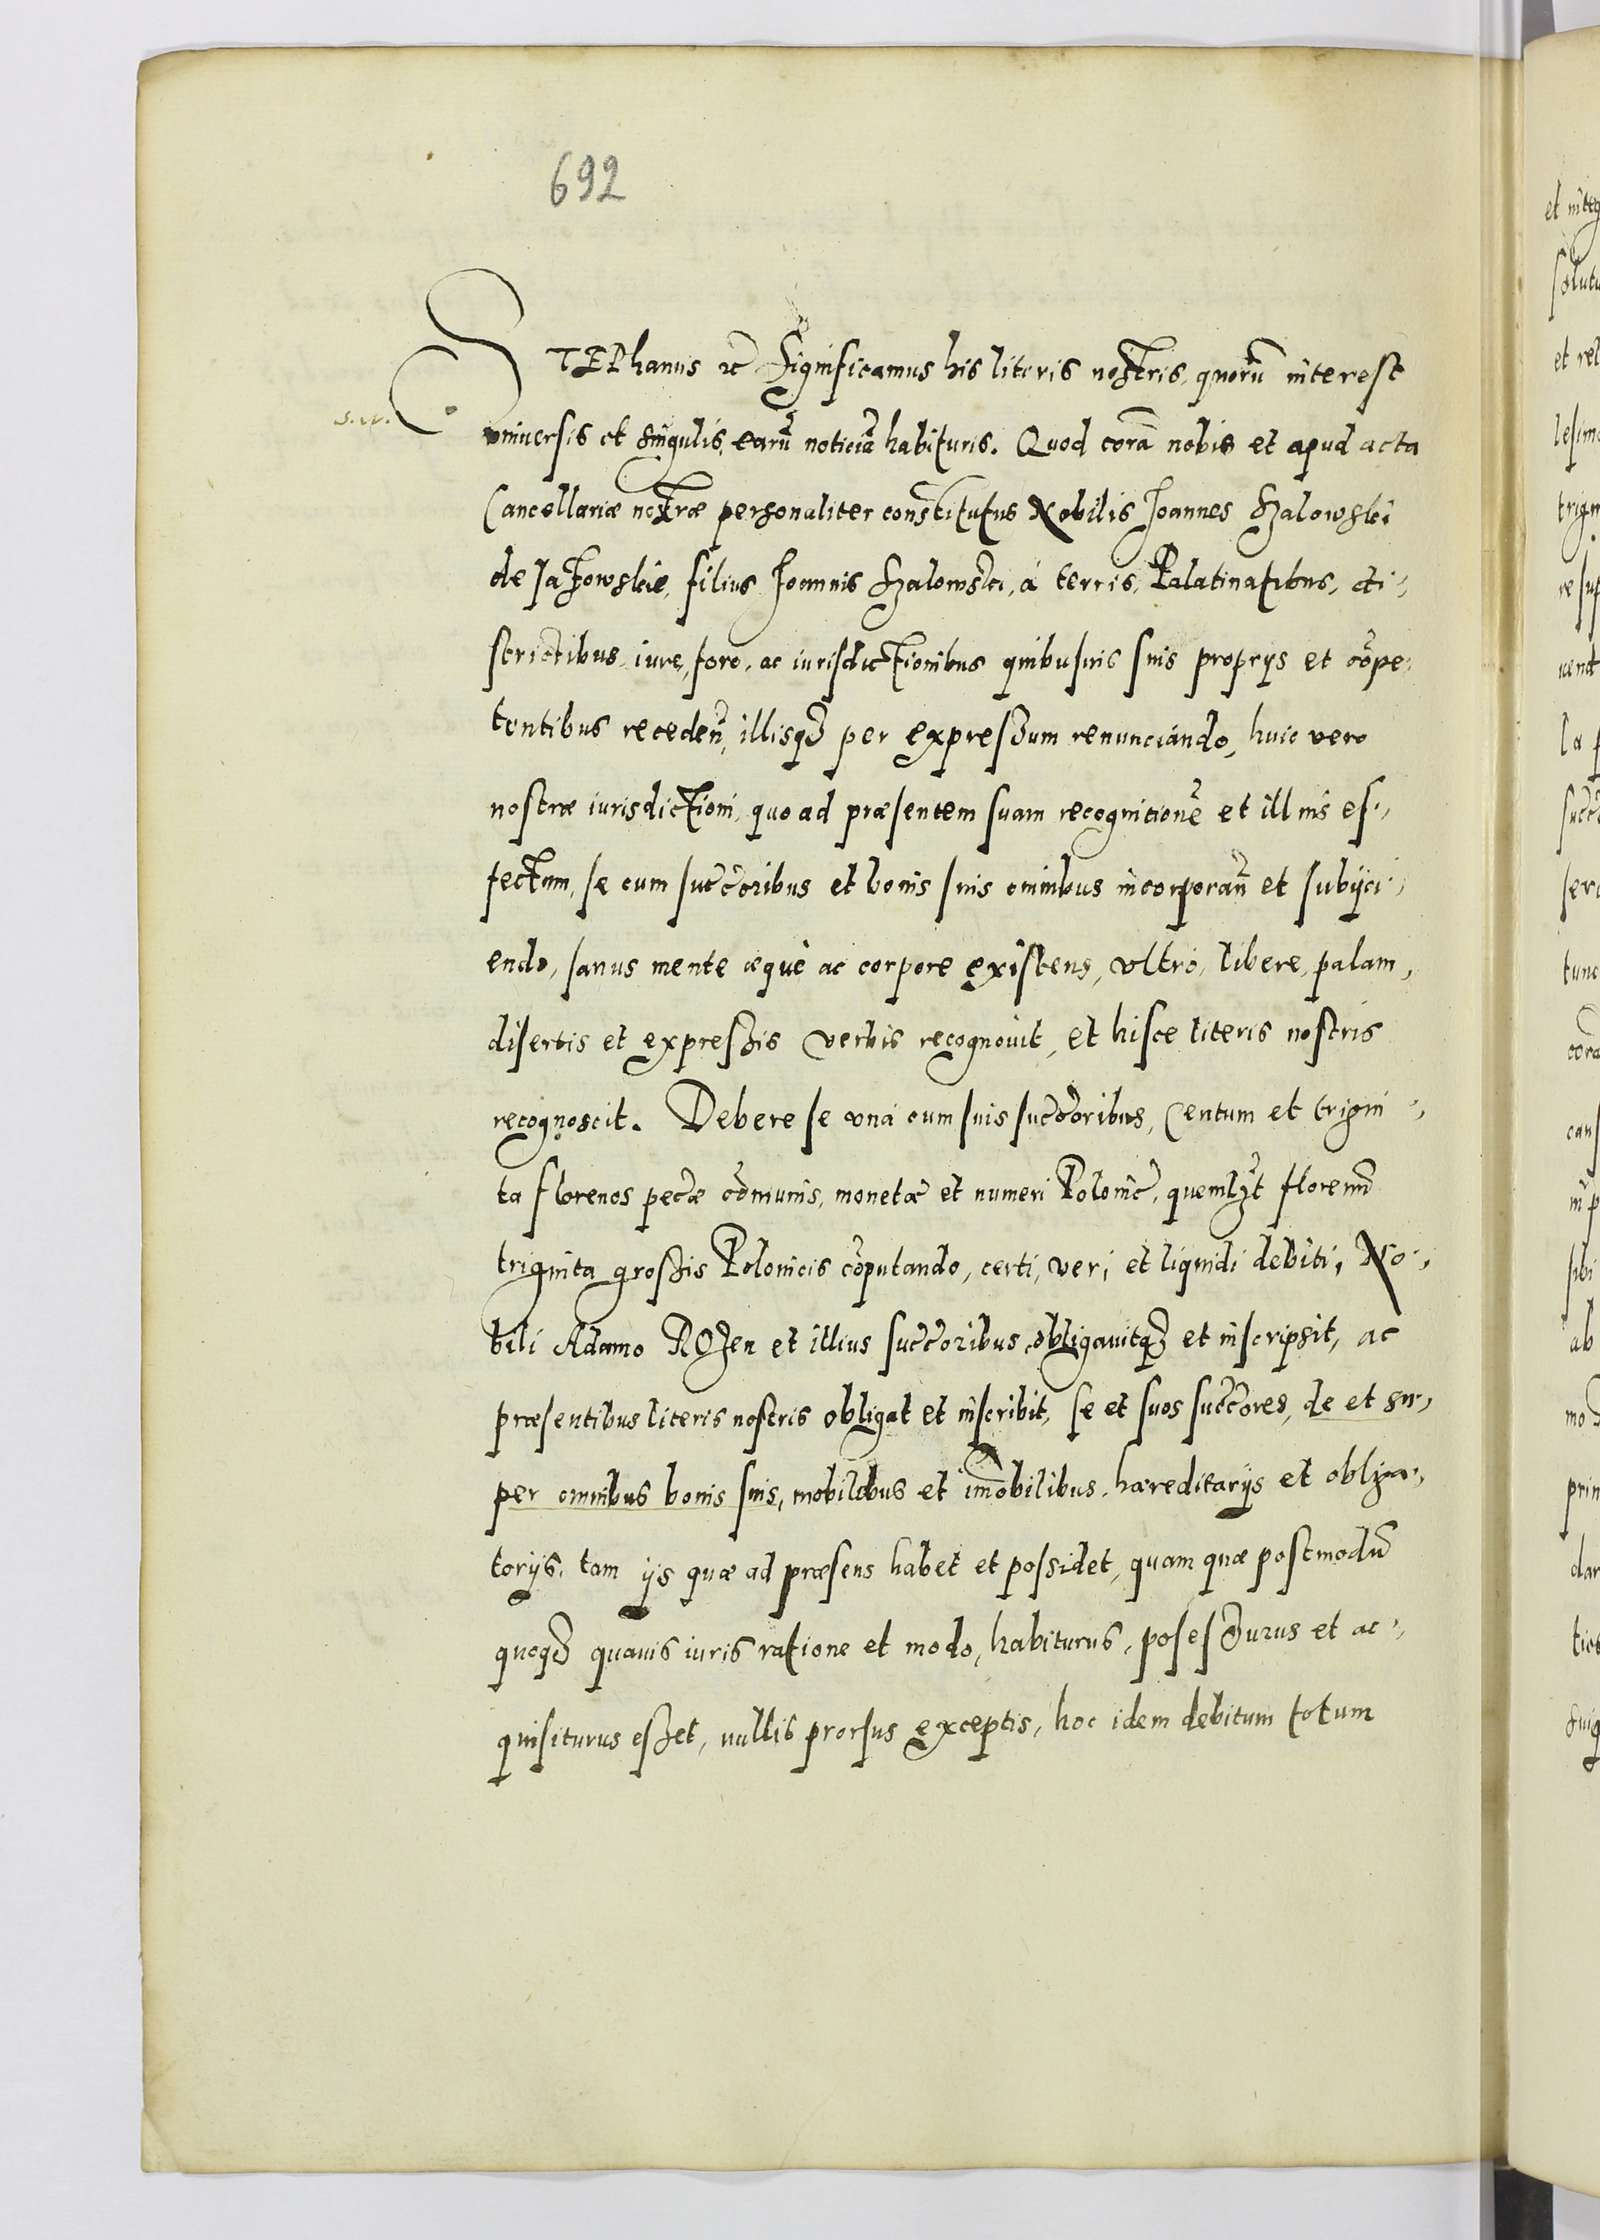 692
STEPhanus etc Significamus his literis nostris, quorũ interest
s. w.
vniuersis et singulis, earũ noticiã habituris. Quod corã nobis et apud acta
Cancellariæ nostræ personaliter constitutus Nobilis Joannes Szalowski
de Jazowskie, filius Joannis Szalowski, á terris, Palatinatibus, di-
strictibus, iure, foro, ac iurisdictionibus quibusuis suis proprijs et cõpe-
tentibus receden̄, illisq3 per expressum renunciando, huic vero
nostræ iurisdictioni, quo ad præsentem suam recognitionẽ et illius ef-
fectum, se cum succ̃oribus et bonis suis omnibus incorporan̄ et subijci-
endo, sanus mente æquè ac corpore existens, vltró, libere, palam,
disertis et expressis verbis recognouit, et hisce literis nostris
recognoscit. Debere se vná cum suis succ̃oribus, Centum et trigin-
ta florenos pec̃æ cõmunis, monetæ et numeri Polonic̃, quemlꝫt florenũ
triginta grossis Polonicis cõputando, certi, veri et liquidi debiti, No-
bili Adamo ROzen et illius succ̃oribus, obligauitq3 et inscripsit, ac
præsentibus literis nostris obligat et inscribit, se et suos succ̃ores, de et su-
per omnibus bonis suis, mobilibus et im̃obilibus, hæreditarijs et obliga-
torijs, tam ijs quæ ad præsens habet et possidet, quam quæ postmodũ
quoq3 quauis iuris ratione et modo, habiturus, posessurus et ac-
quisiturus esset, nullis prorsus exceptis, hoc idem debitum totum